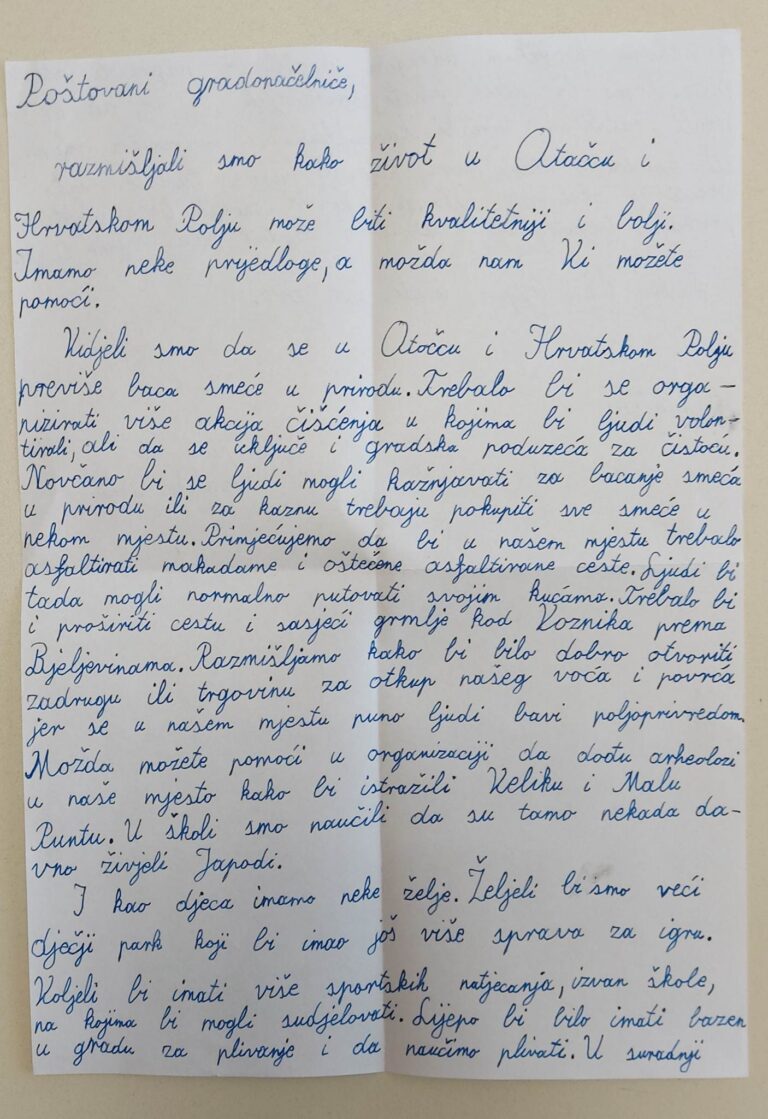 Poštovani gradonačelniče,
razmišljali smo kako život u Otočcu i
Hrvatskom Polju može biti kvalitetniji i bolji.
Imamo neke prijedloge, a možda nam Vi možete
pomoći.
Vidjeli smo da se u Otočcu i Hrvatskom Polju
previše baca smeće u prirodu. Trebalo bi se orga-
nizirati više akcija čišćenja u kojima bi ljudi volon-
tirali, ali da se uključe i gradska poduzeća za čistoću.
Novčano bi se ljudi mogli kažnjavati za bacanje smeća
u prirodu ili za kaznu trebaju pokupiti sve smeće u
nekom mjestu. Primjećujemo da bi u našem mjestu trebalo
asfaltirati makadame i oštećene asfaltirane ceste. Ljudi bi
tada mogli normalno putovati svojim kućama. Trebalo bi
i proširiti cestu i sasjeći grmlje kod Voznika prema
Bjeljevinama. Razmišljamo kako bi bilo dobro otvoriti
zadrugu ili trgovinu za otkup našeg voća i povrća
jer se u našem mjestu puno ljudi bavi poljoprivredom.
Možda možete pomoći u organizaciji da dođu arheolozi
u naše mjesto kako bi istražili Veliku i Malu
Puntu. U školi smo naučili da su tamo nekada da-
vno živjeli Japodi.
I kao djeca imamo neke želje. Željeli bi smo veći
dječji park koji bi imao još više sprava za igru.
Voljeli bi imati više sportskih natjecanja, izvan škole,
na kojima bi mogli sudjelovati. Lijepo bi bilo imati bazen
u gradu za plivanje i da naučimo plivati. U suradnji